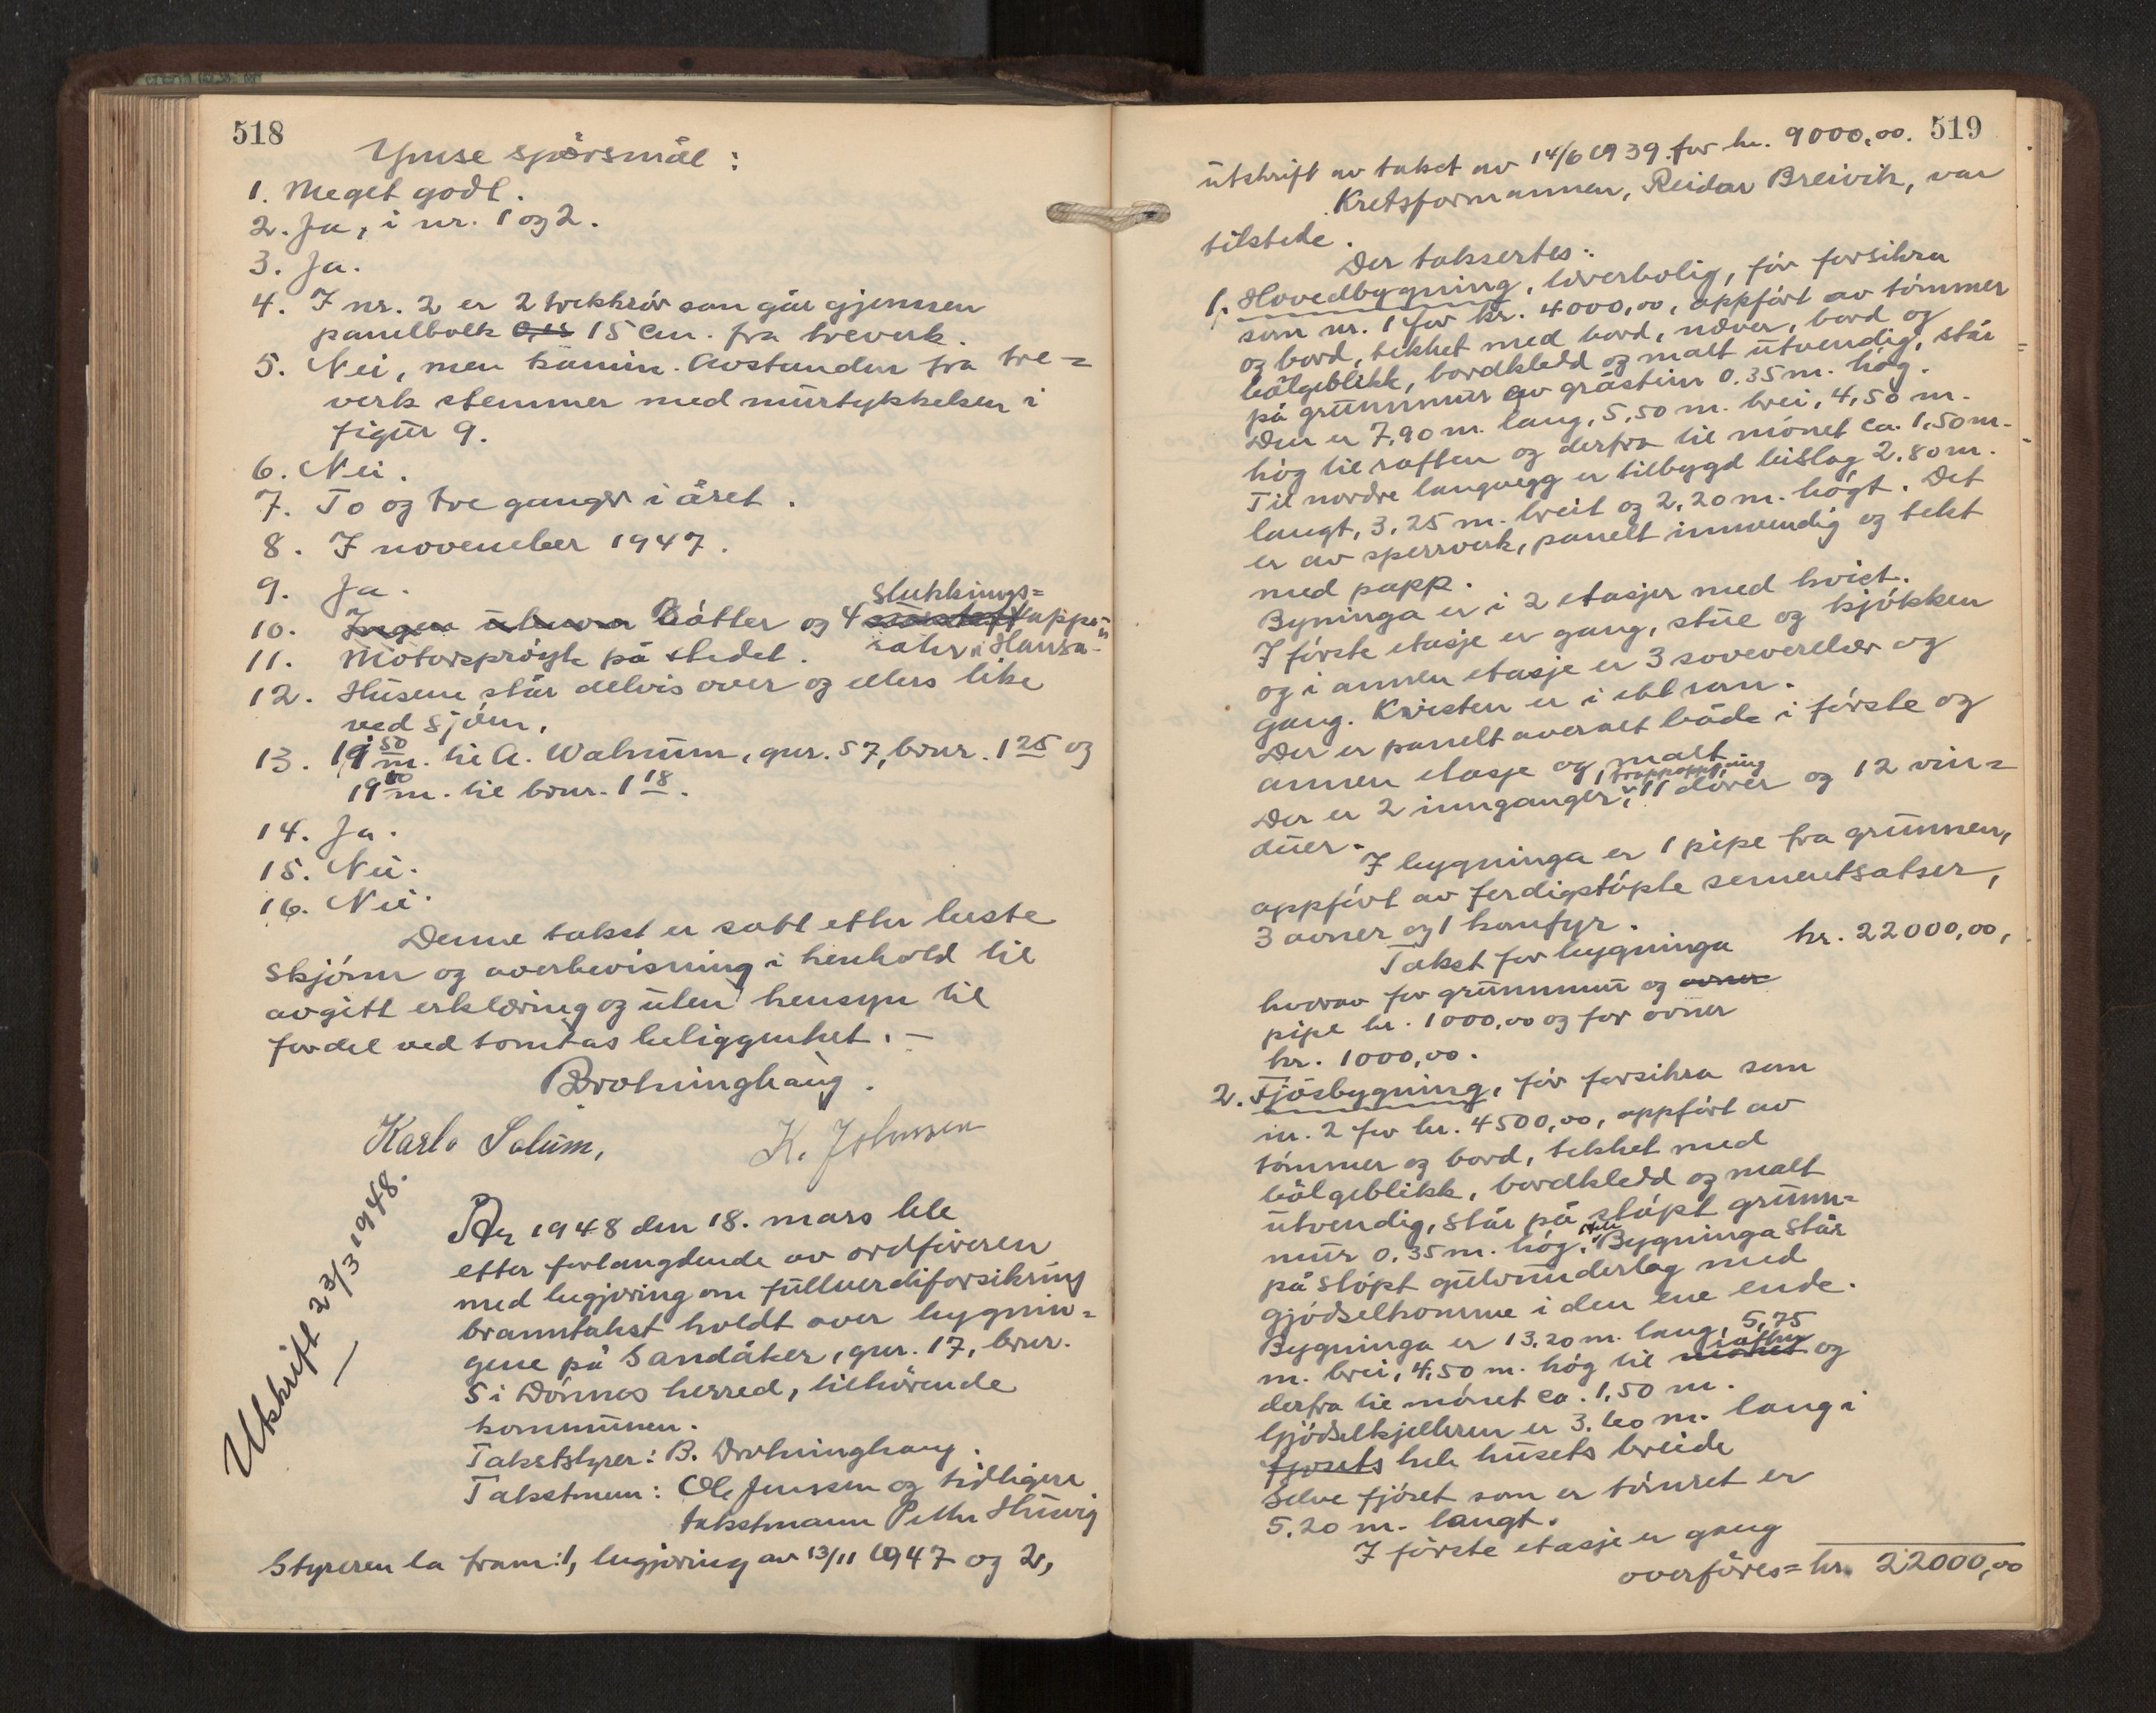 518
Ymse spörsmål:
1. Meget godt.
2. Ja, i nr. 1 og 2.
3. Ja.
4. I nr. 2 er 2 trekkrör som går gjennem
panelbolk 15 cm. fra treverk.
5. Nei, men kamin. Avstanden fra tre=
verk stemmer med murtykkelsen i
figur 9.
6. Nei.
7. To og tre ganger i året.
8. I november 1947.
9. Ja.
slukkings=
10. Ingen Bötter og 4 appa=
rater "Hansa"
11. Motorspröyte på stedet.
12. Husene står delvis over og ellers like
ved sjöen.
13. 19 50 m. til A. Walnum, gnr. 57, bnr. 1 25 og
19 m. til bnr. 1 18.
14. Ja.
15. Nei.
16. Nei.
Denne takst er satt etter beste
skjönn og overbevisning i henhold til
avgitt erklæring og uten hensyn til
fordel ved tomtas beliggenhet. —
Drotninghaug.
Karlo Solum,
K. Johnsen
Utskrift 23/3 1948.
År 1948 den 18. mars ble
etter forlangdende av ordföreren
med begjæring om fullverdiforsikring
branntakst holdt over bygnin=
gene på Sandåker, gnr. 17, bnr.
5 i Dönnes herred, tilhörende
kommunen.
Takststyrer: B. Drotninghaug.
Takstmenn: Ole Jenssen og tidligere
takstmann Petter Husvig
Styreren la fram: 1, begjæring av 13/11 1947 og 2,
519
utskrift av takst av 14/6 1939 for kr. 9000,00.
Kretsformannen, Reidar Breivik, var
tilstede.
Der taksertes:
1. Hovedbygning, lærerbolig, för forsikra
som nr. 1 for kr. 4000,00, oppfört av tömmer
og bord, tekket med bord, næver, bord og
bölgeblikk, bordkledd og malt utvendig, står
på grunnmur av gråstein 0.35 m. hög.
Den er 7,90 m. lang, 5,50 m. brei, 4,50 m.
hög til raften og derfra til mönet ca. 1,50 m.
Til nordre langvegg er tilbygd bislag 2.80 m.
langt, 3,25 m. breit og 2,20 m. högt. Det
er av sperrverk, panelt innvendig og tekt
med papp.
Byninga er i 2 etasjer med kvist.
I förste etasje er gang, stue og kjökken
og i annen etasje er 3 soveverelser og
gang. Kvisten er i ett rom.
Der er panelt overalt både i förste og
annen etasje og malt
Der er 2 innganger, 1 trappoppgang 11 dörer og 12 vin=
duer.
I bygninga er 1 pipe fra grunnen,
oppfört av ferdigstöpte sementsatser,
3 ovner og 1 komfyr.
Takst for bygninga kr. 22000,00,
hvorav for grunnmur og ovner
pipe kr. 1000,00 og for ovner
kr. 1000,00.
2. Fjösbygning, för forsikra som
nr. 2 for kr. 4500,00, oppfört av
tömmer og bord, tekket med
bölgeblikk, bordkledd og malt
utvendig, står på stöpt grunn=
mur 0.35 m. hög. Hele Bygninga står
på stöpt gulvunderlag med
gjödselkomme i den ene ende.
Bygninga er 13,20 m. lang, 5,75
m. brei, 4,50 m. hög til mönet raften og
derfra til mönet ca. 1,50 m.
Gjödselkjelleren er 3.60 m. lang i
fjösets hele husets breide
Selve fjöset som er tömret er
5.20 m. langt.
I förste etasje er gang
overföres = kr. 22000,00